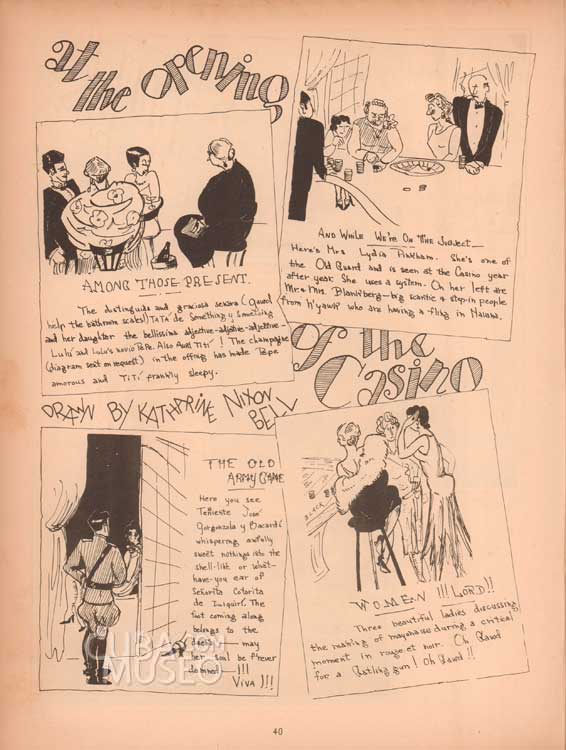 at the opening
of the
Casino
AMONG THOSE PRESENT.
The distinguida and graciosa senora (Gawd
help the bathroom scales!) TaTá de Something y Something
and her daughter the bellissima adjective-adjective-adjective-
Lulú and Lulu's novio Pepe. Also Aunt Tití! The champagne
(diagram sent on request) in the offing has made Pepe
amorous and Tití frankly sleepy.
AND While We're On The Subject—
Here's Mrs Lydia Pinkham. She's one of
the Old Guard and is seen at the Casino year
after year. She uses a system. On her left are
Mr & Mrs. Blankberg— big and step-in people
from N'yawk who are having a fling in Havana.
DRAWN BY KATHARINE NIXON
BELL
THE OLD
ARMY GAME
Here you see
Teniente José
Gorgonzola y Bacardi
whispering awfully
sweet nothings into the
shell-like or what-
have-you ear of
Señorita Cotorita
de Daiquiri. The
foot coming along
belongs to the
duena — may
her soul be f'rever
damned—!!!
VIVA!!!
BLACK
WOMEN !!! LORD!!
Three beautiful ladies discussing
the making of mayonaise during a critical
moment in rouge et noir. Oh Gawd
for a Gatling gun! Oh Gawd!!
CUBA
MUSEO
40